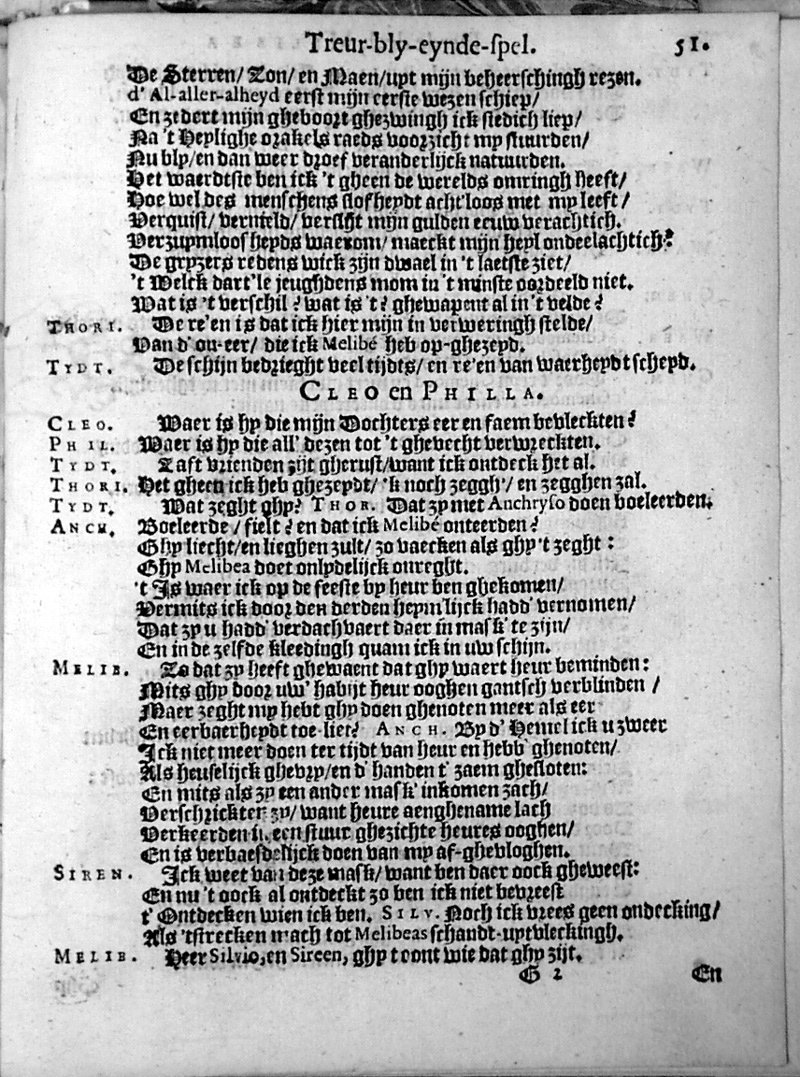 Treur-bly-eynde-spel. 51.
De Sterren/ Zon/ en Maen/ uyt mijn beheerschingh rezen.
d' Al-aller-alheyd eerst mijn eerste wezen schiep/
En zedert mijn gheboort ghezwingh ick stedich liep/
Na 't Heylighe orakels raeds voorzicht my stuurden/
Nu bly/ en dan weer droef veranderlijck natuurden.
Het waerdtste ben ick 't gheen de werelds omringh heeft/
Hoe wel des menschens slofheydt acht'loos met my leeft/
Verquist/ vernield/ verslijt mijn gulden eeuw verachtich.
Verzuymloosheyds waerom/ maeckt mijn heyl ondeelachtich?
De gryzers redens wick zijn dwael in 't laetste ziet/
't Welck dart'le jeughdens mom in 't minste oordeeld niet.
Wat is 't verschil? wat is 't? ghewapent al in 't velde?
THORI. De re'en is dat ick hier mijn in verweringh stelde/
Van d' on-eer/ die ick Melibé heb op-ghezeyd.
TYDT. De schijn bedrieght veel tijdts/ en re'en van waerheydt scheyd.
CLEO en PHILLA.
CLEO. Waer is hy die mijn Dochters eer en faem bevleckten?
PHIL. Waer is hy die all' dezen tot 't ghevecht verwreckten.
TYDT. Zaft vrienden zijt gherust/ want ick ontdeck het al.
THORI. Het gheen ick heb ghezeydt/ 'k noch zeggh'/ en zegghen zal.
TYDT. Wat zeght ghy? THOR. Dat zy met Anchryso doen boeleerden.
ANCH. Boeleerde/ fielt? en dat ick Melibé onteerden?
Ghy liecht/ en lieghen zult/ zo vaecken als ghy 't zeght:
Ghy Melibea doet onlydelijck onreght.
't Is waer ick op de feeste by heur ben ghekomen/
Vermits ick door den derden heym'lijck hadd' vernomen/
Dat zy u hadd' verdachvaert daer in mask' te zijn/
En in de zelfde kleedingh quam ick in uw schijn.
MELIB. Zo dat zy heeft ghewaent dat ghy waert heur beminden:
Mits ghy door uw' habijt heur ooghen gantsch verblinden/
Maer zeght my hebt ghy doen ghenoten meer als eer
En eerbaerheydt toe-liet? ANCH. By d' Hemel ick u zweer
Ick niet meer doen ter tijdt van heur en hebb' ghenoten/
Als heuselijck ghevry/ en d' handen t' zaem ghesloten:
En mits als zy een ander mask' inkomen zach/
Verschrickten zy/ want heure aenghename lach
Verkeerden in een stuur ghezichte heures ooghen/
En is verbaesdelijck doen van my af-ghevloghen.
SIREN. Ick weet van deze mask/ want ben daer oock gheweest:
En nu 't oock al ontdeckt zo ben ick niet bevreest
t' Ontdecken wien ick ben. SILV. Noch ick vrees geen ondecking/
Als 'tstrecken mach tot Melibeas schandt-uytvleckingh.
MELIB. Heer Silvio, en Sireen, ghy toont wie dat ghy zijt.
G 2 En